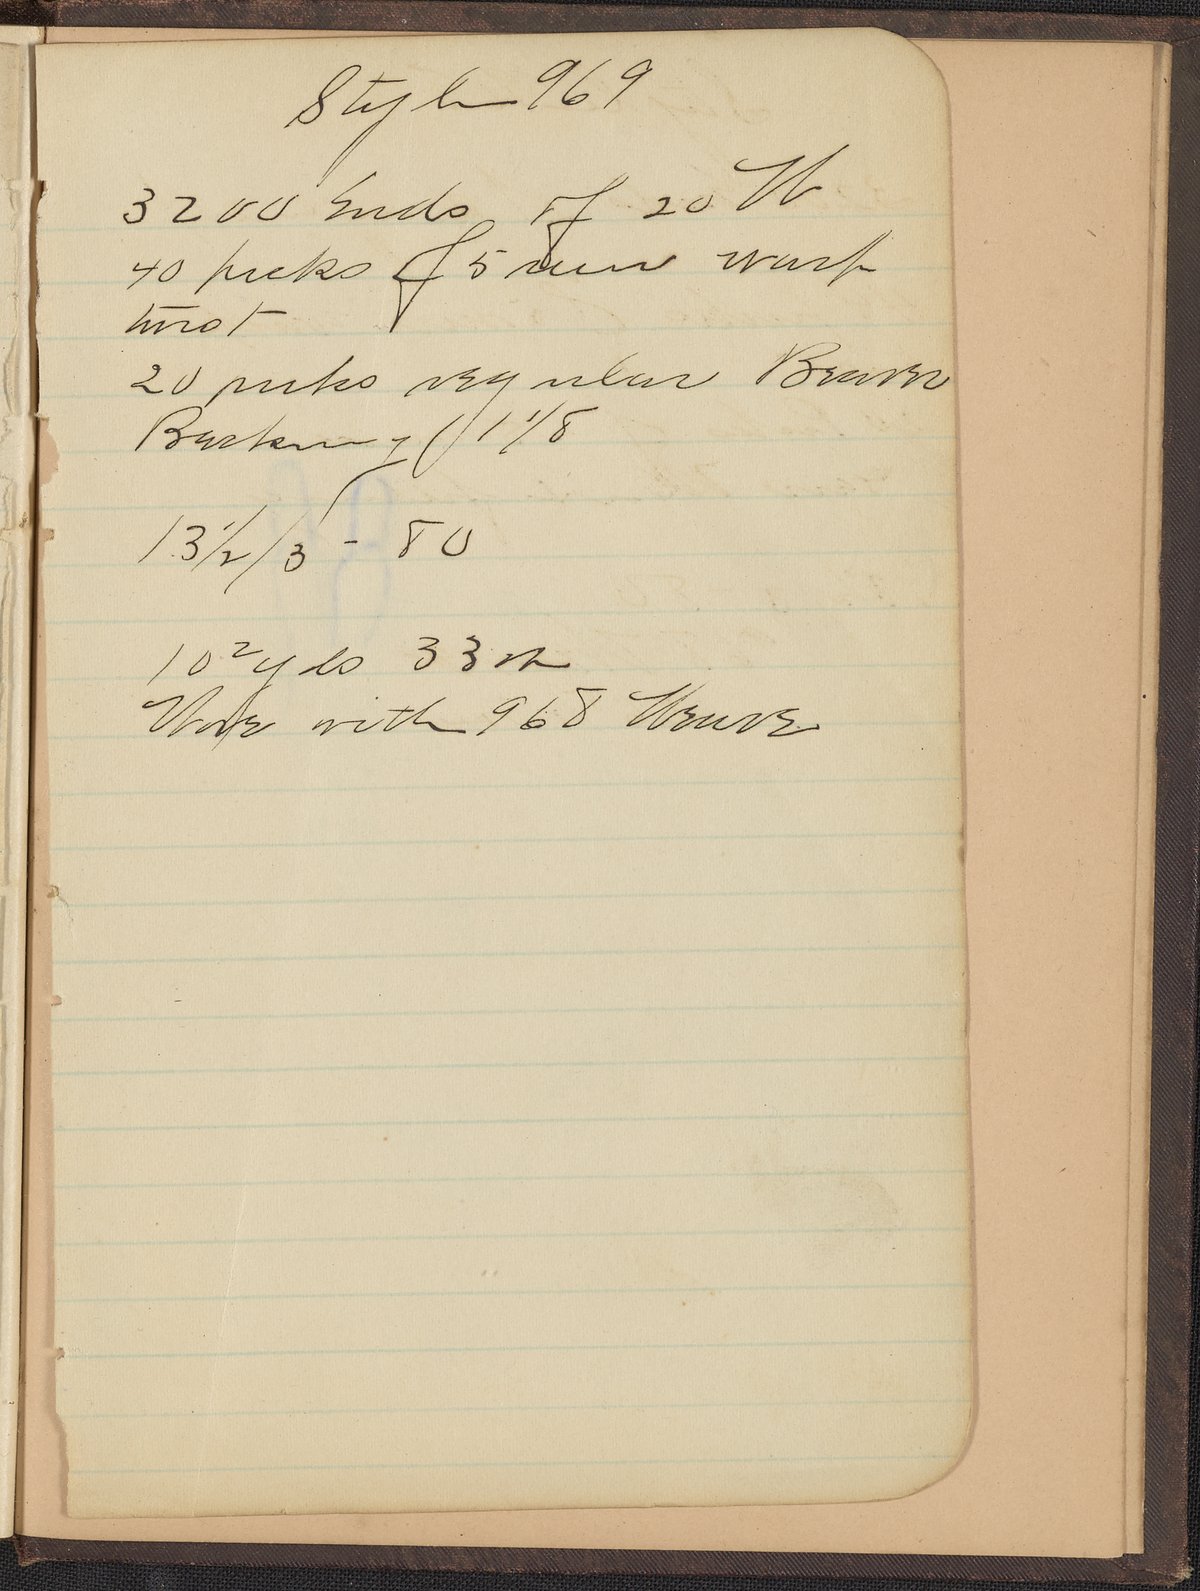 Style 969
3200 Ends of 20 W
40 picks of 5 run warp
twist
20 picks regular Beaver
Backing 1 1/8
13 1/2/3 - 80
10² yds 33
Wove with 968 Weave